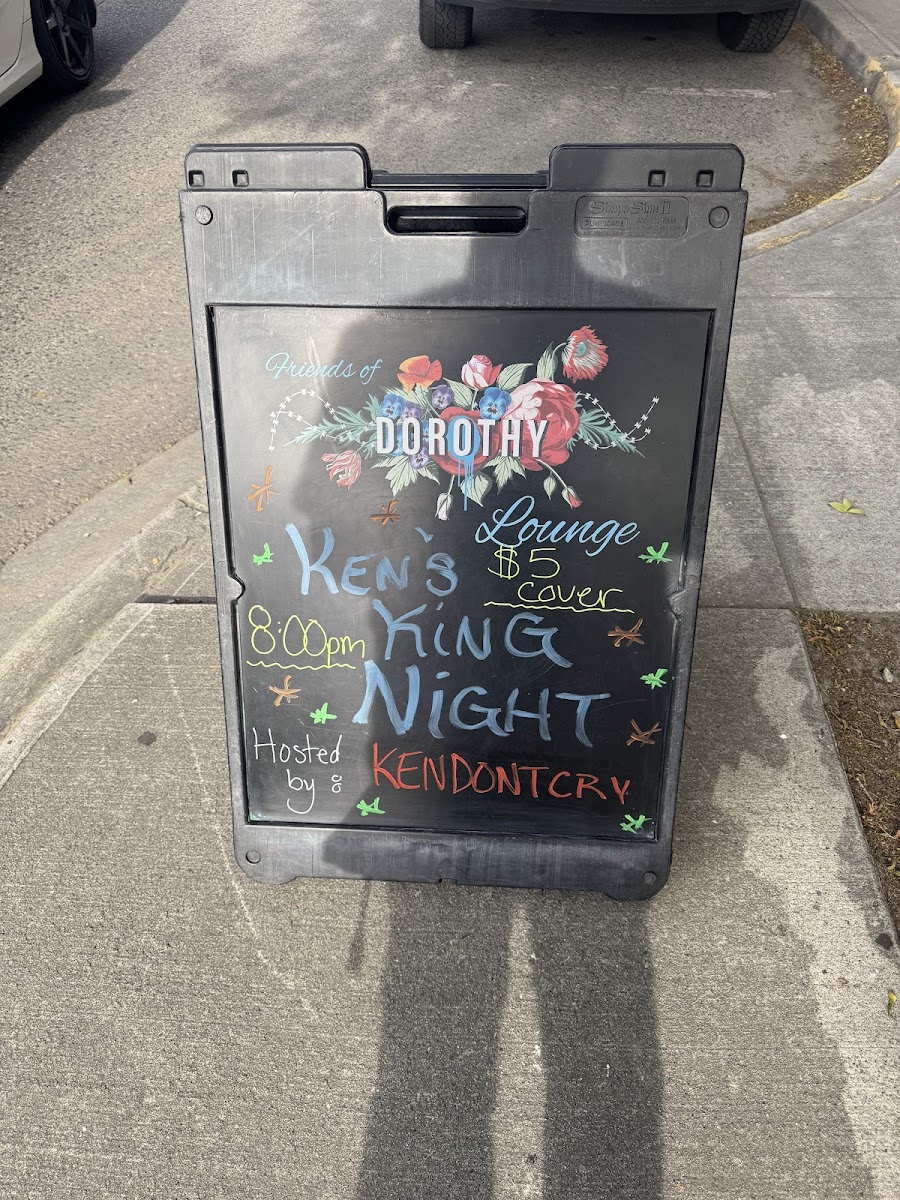 Friends of
DOROTHY
Lounge
KEN'S
$5
cover
8:00pm
KiNG
NiGHT
Hosted
by:
KENDONTCRY